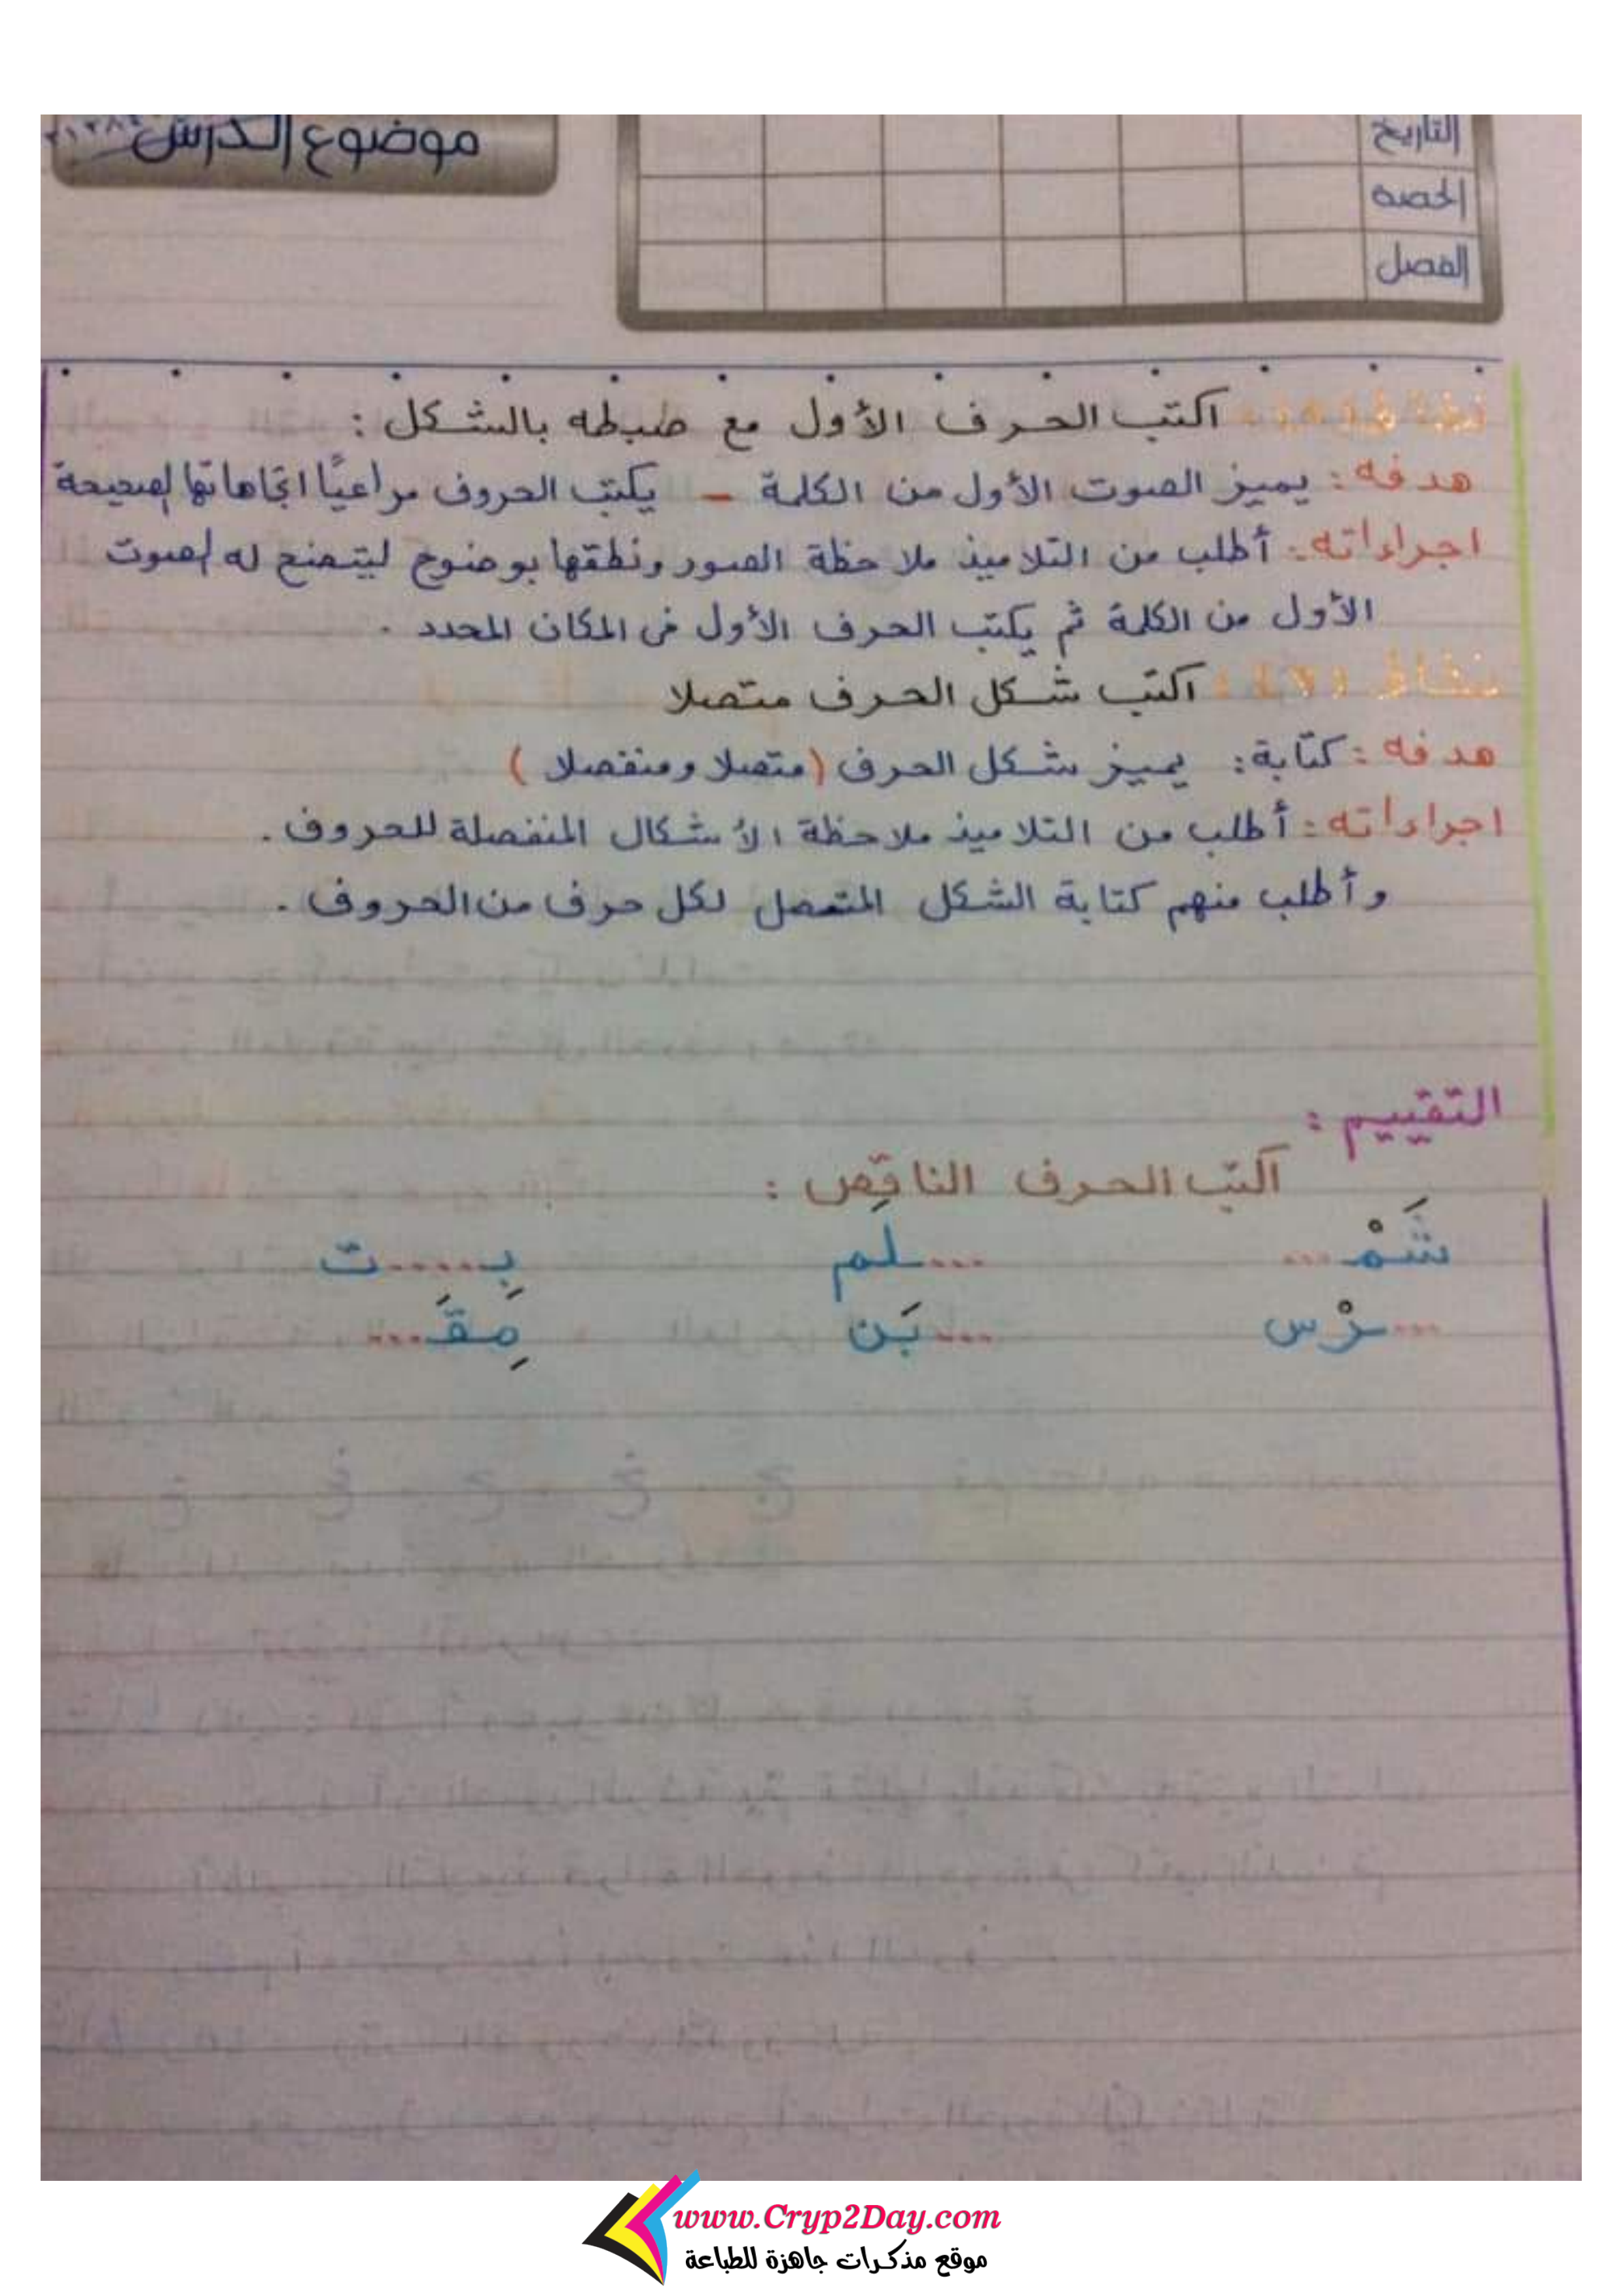 التاريخ
الحصة
الفصل
موضوع الدرس
اكتب الحرف الأول مع ضبطه بالشكل :
هدفه : يميز الصوت الأول من الكلمة – يكتب الحروف مراعيًا اتجاهاتها الصحيحة
اجراءاته : أطلب من التلاميذ ملاحظة الصور ونطقها بوضوح ليتضح له الصوت
الأول من الكلمة ثم يكتب الحرف الأول فى المكان المحدد .
نشاط اكتب شكل الحرف متصلا
هدفه : كتابة : يميز شكل الحرف (متصلا ومنفصلا )
اجراءاته : أطلب من التلاميذ ملاحظة الأشكال المنفصلة للحروف .
وأطلب منهم كتابة الشكل المتصل لكل حرف من الحروف .
التقييم :
اكتب الحرف الناقص :
شَمْـ... ...ـلم بِـ.....ـت
...ـرْس ...ـبَن مِقَـ...
www.Cryp2Day.com
موقع مذكرات جاهزة للطباعة